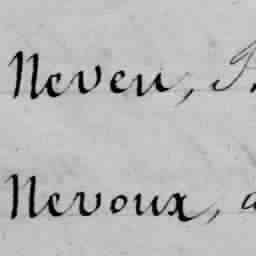 Neveu,
Nevoux,